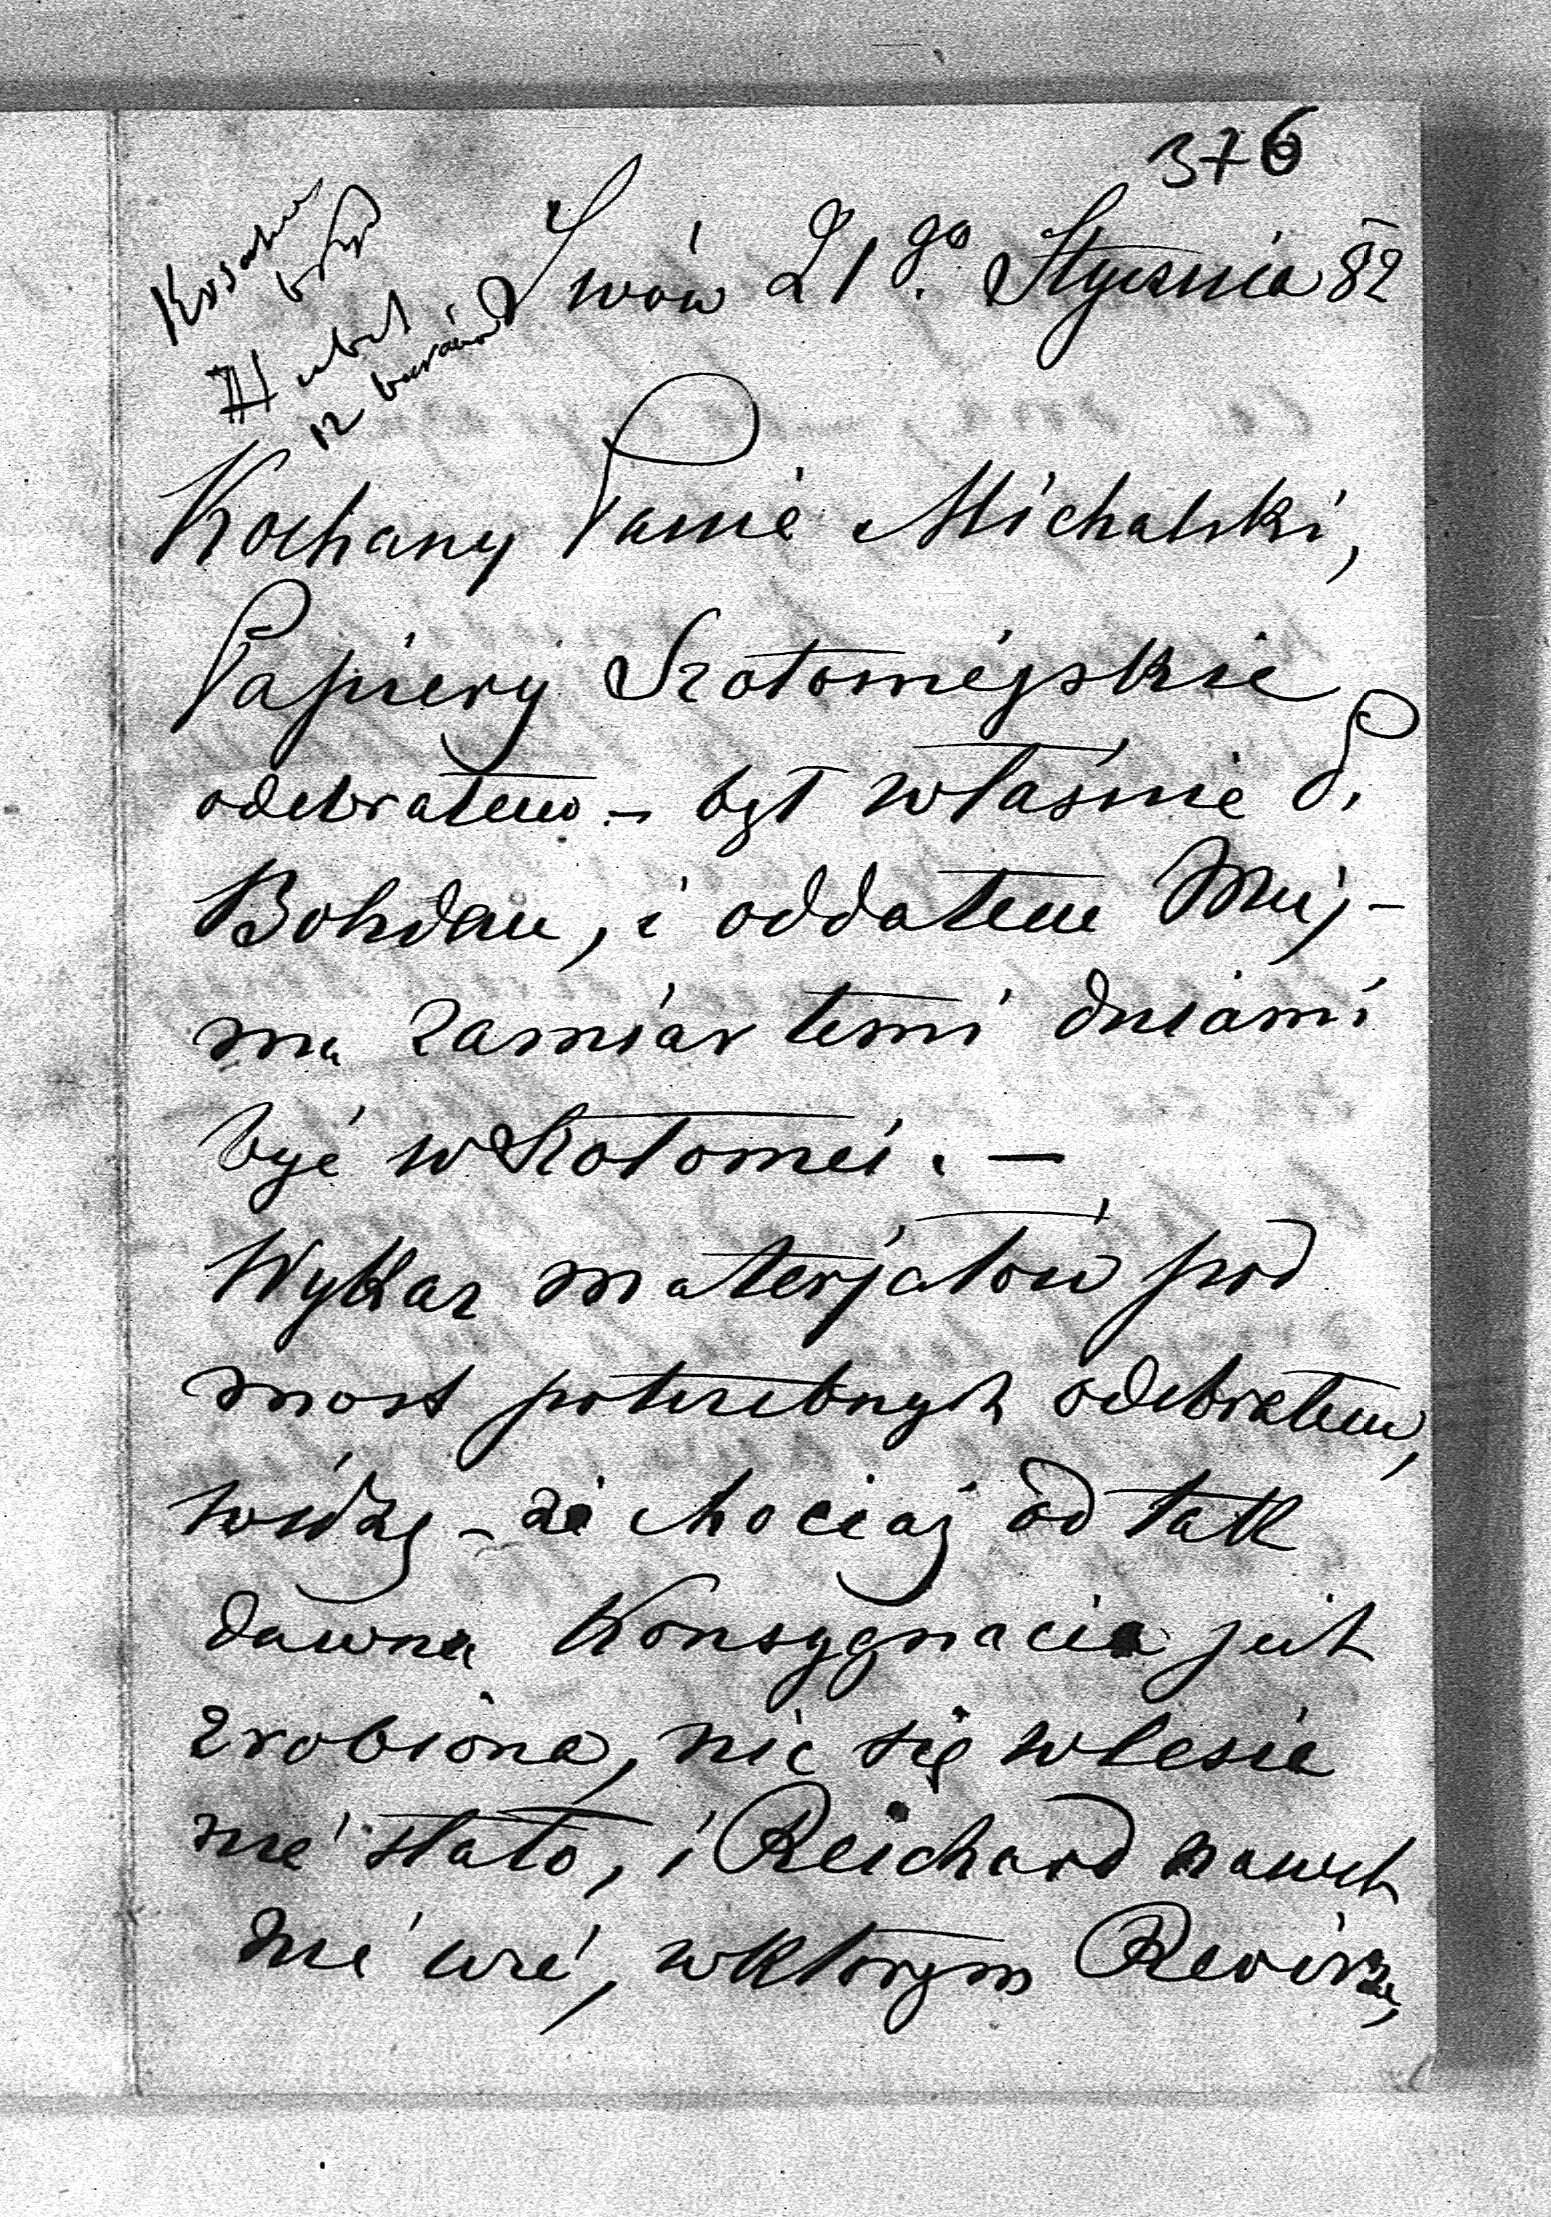 376
Lwów 21go. Stycznia 82
12 baranów
Kochany Panie Michalski,
Papiery Kołomejskie
odebrałem – był właśnie P.
Bohdan, i oddałem Mu j –
ma zamiar temi dniami
być w Kołomei. –
Wykaz materjałów pod
most potrzebnych odebrałem,
widzę – że chociaj od tak
dawna Konsygnacia jest
zrobiona, nic się w lesie
nie stało, i Reichard nawet
nie wie, w ktorym Revirze,